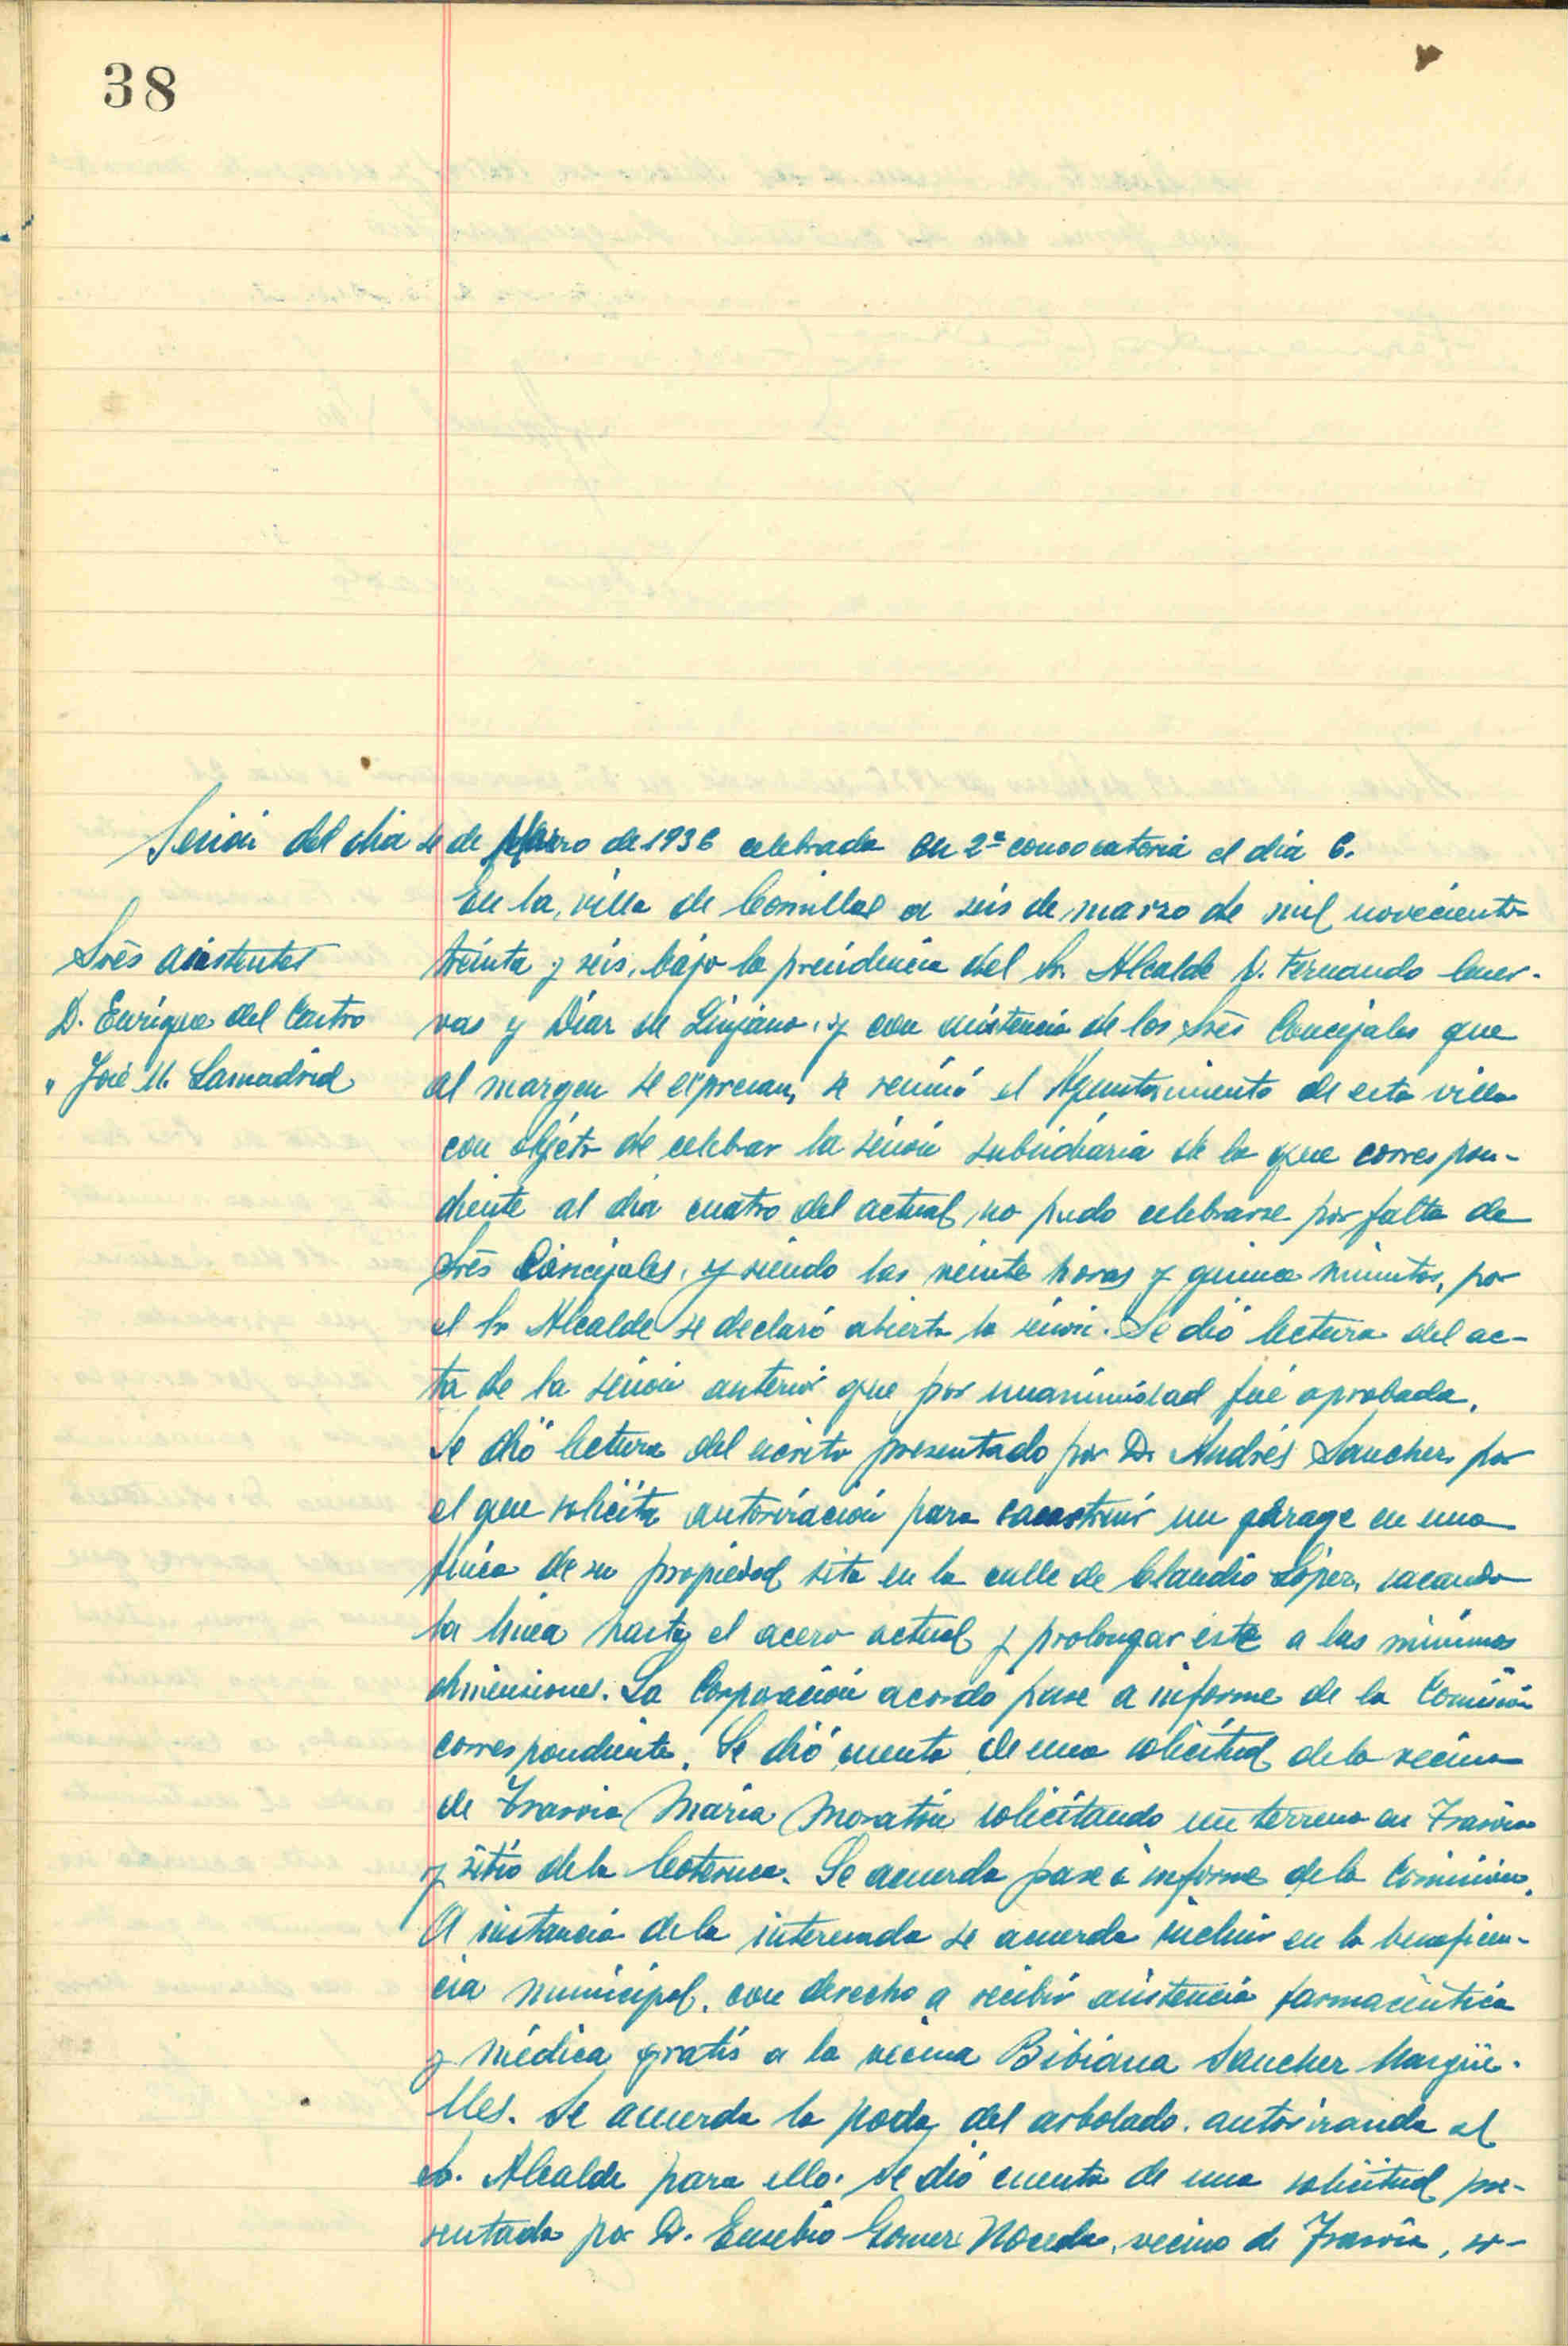 38
Sesión del dia 4 de Marzo de 1936 celebrada en 2ª convocatoria el día 6.
En la villa de Comillas a seis de marzo de mil novecientos
Srês asistentes
treinta y seis, bajo la presidencia del Sr. Alcalde D. Fernando Cuer-
D. Enrique del Castro
vas y Díaz de Linjano, y con asistencia de los Srês Concejales que
" José M. Lamadrid
al margen se expresan, se reunió el Ayuntamiento de esta villa
con objeto de celebrar la sesión subsidiaria de la que correspon-
diente al día cuatro del actual no pudo celebrarse por falta de
Srês Concejales, y siendo las veinte horas y quince minutos, por
el Sr Alcalde se declaró abierta la sesión. Se dió lectura del ac-
ta de la sesión anterior que por unanimidad fué aprobada.
Se dió lectura del escrito presentado por D. Andrés Sanchez, por
el que solicita autorización para construir un garage en una
finca de su propiedad sita en la calle de Claudio López, sacando
la linea hasta el acero actual y prolongar este a las mismas
dimensiones. La Corporación acordó pase a informe de la Comisión
correspondiente. Se dió cuenta de una solicitud de la vecina
de Trasvia María Moratón solicitando un terreno en Trasvia
y sitio de la Coteruca. Se acuerda pase á informe de la Comisión.
A instancia de la interesada se acuerda incluir en la beneficen-
cia municipal, con derecho a recibir asistencia farmacéutica
y médica gratis a la vecina Bibiana Sanchez Margüe-
lles. Se acuerda la poda del arbolado, autorizando al
Sr. Alcalde para ello. Se dió cuenta de una solicitud pre-
sentada por D. Eusebio Gomez Noceda, vecino de Trasvia, so-